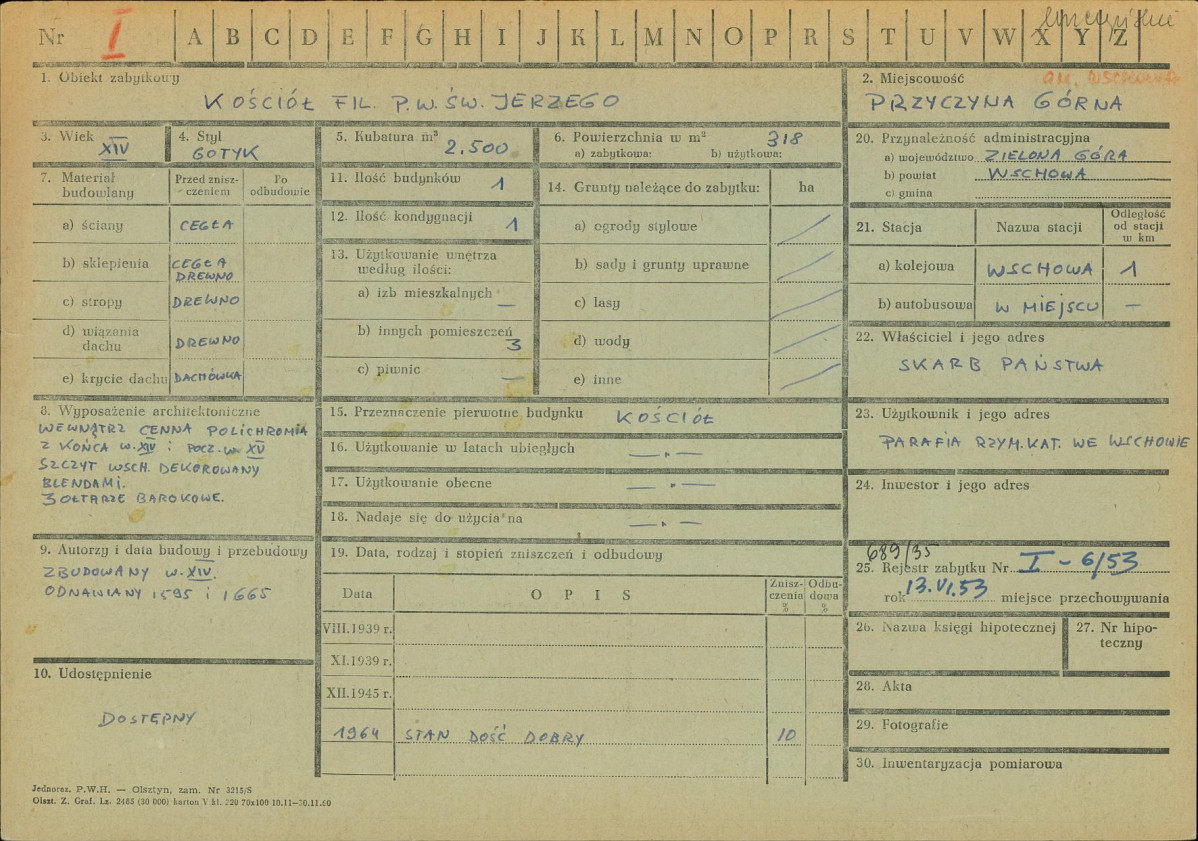 Nr I A B C D E F G H I J K L M N O P R S T U V W X Y Z
1. Obiekt zabytkowy
KOŚCIÓŁ FIL. P.W. ŚW. JERZEGO
2. Miejscowość
gm. WSCHOWA
PRZYCZYNA GÓRNA
3. Wiek
XIV
4. Styl
GOTYK
5. Kubatura m³
2.500
6. Powierzchnia w m² 318
a) zabytkowa: b) użytkowa:
7. Materiał budowlany
Przed znisz-
czeniem
Po
odbudowie
a) ściany CEGŁA
b) sklepienia CEGŁA
DREWNO
c) stropy DREWNO
d) wiązania
dachu DREWNO
e) krycie dachu DACHÓWKA
8. Wyposażenie architektoniczne
WEWNĄTRZ CENNA POLICHROMIA
Z KOŃCA W. XIV i POCZ. W. XV
SZCZYT WSCH. DEKOROWANY
BLENDAMI.
3 OŁTARZE BAROKOWE.
9. Autorzy i data budowy i przebudowy
ZBUDOWANY W. XIV.
ODNAWIANY 1595 i 1665
10. Udostępnienie
DOSTĘPNY
11. Ilość budynków 1
12. Ilość kondygnacji 1
13. Użytkowanie wnętrza
według ilości:
a) izb mieszkalnych —
b) innych pomieszczeń 3
c) piwnic —
14. Grunty należące do zabytku: ha
a) ogrody stylowe
b) sady i grunty uprawne
c) lasy
d) wody
e) inne
15. Przeznaczenie pierwotne budynku KOŚCIÓŁ
16. Użytkowanie w latach ubiegłych — „ —
17. Użytkowanie obecne — „ —
18. Nadaje się do użycia na — „ —
19. Data, rodzaj i stopień zniszczeń i odbudowy
Data OPIS Znisz-
czenia
% Odbu-
dowa
%
VIII.1939 r.
XI.1939 r.
XII.1945 r.
1964 STAN DOŚĆ DOBRY 10
20. Przynależność administracyjna
a) województwo ZIELONA GÓRA
b) powiat WSCHOWA
c) gmina
21. Stacja Nazwa stacji Odległość
od stacji
w km
a) kolejowa WSCHOWA 1
b) autobusowa W MIEJSCU —
22. Właściciel i jego adres
SKARB PAŃSTWA
23. Użytkownik i jego adres
PARAFIA RZYM. KAT. WE WSCHOWIE
24. Inwestor i jego adres
689/35
25. Rejestr zabytku Nr I - 6/53
rok 13.VI.53 miejsce przechowywania
26. Nazwa księgi hipotecznej
27. Nr hipo-
teczny
28. Akta
29. Fotografie
30. Inwentaryzacja pomiarowa
Jednoraz. P.W.H. — Olsztyn, zam. Nr 3215/S
Olszt. Z. Graf. Lz. 2485 (30 000) karton V kl. 220 70x100 10.11—30.11.60